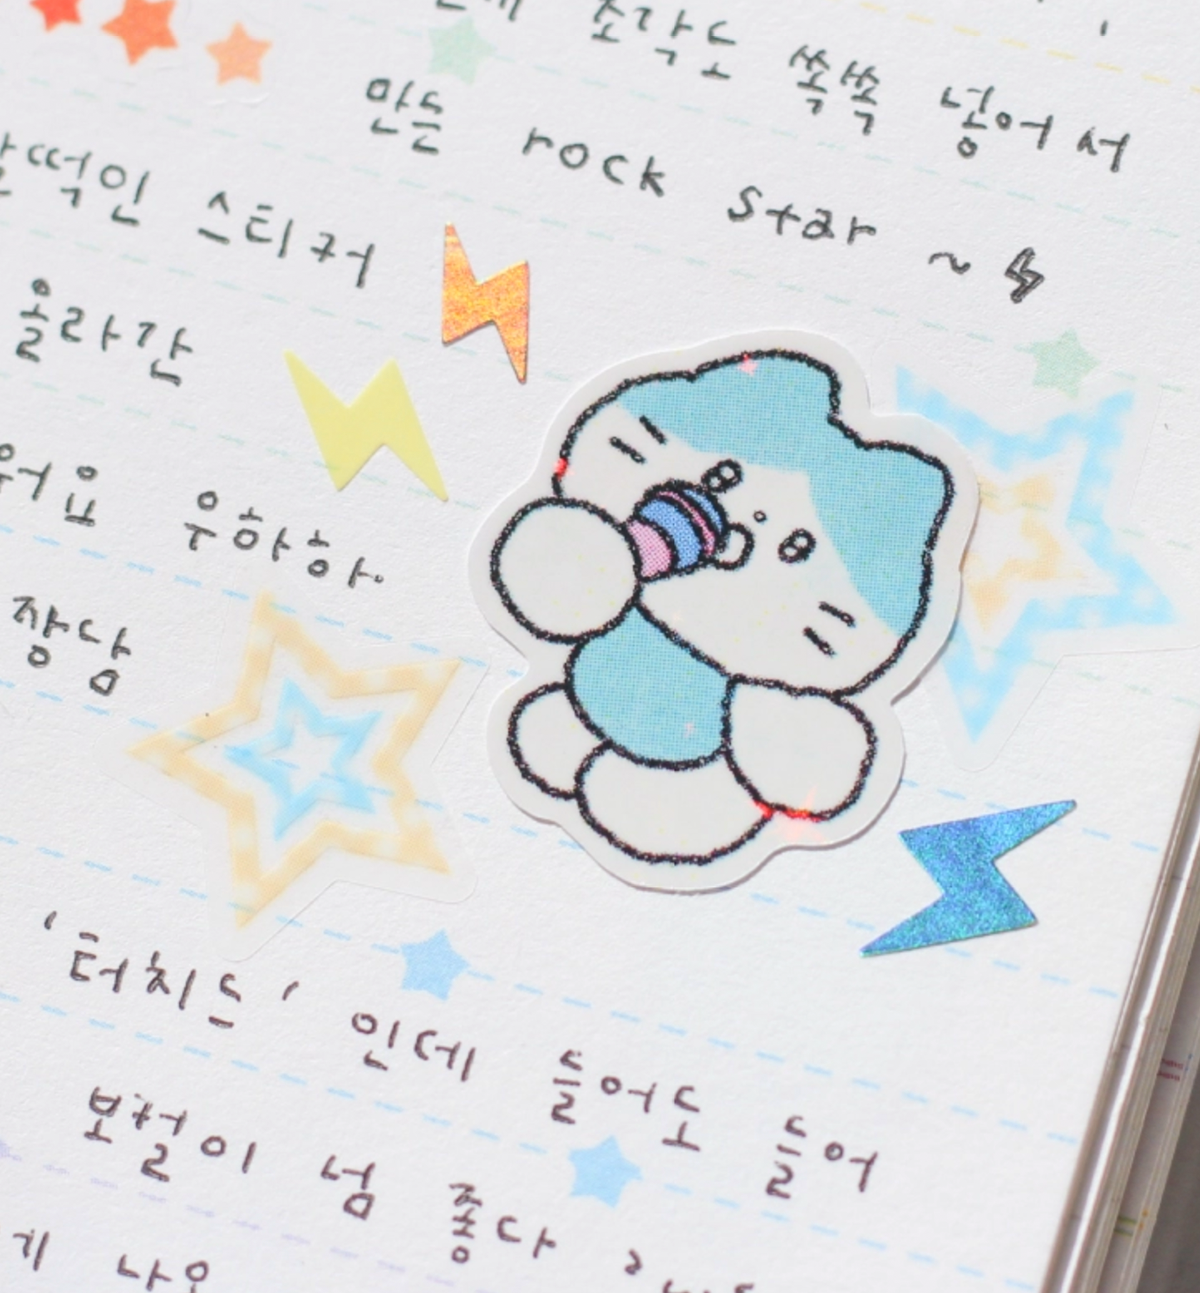 조각도 쏙쏙 넣어서
만든 rock star ~
떡인 스티커
올라간
요 우하하.
짱남
'터치드' 인데 들어도 들어
보컬이 넘 좋다
게 나오